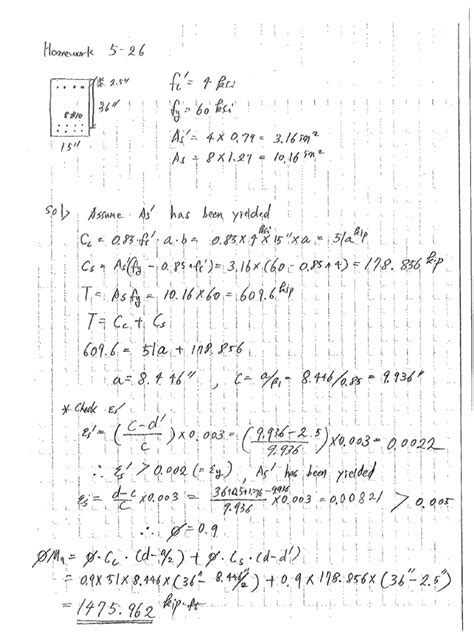 Homework 5-26
2.5"
fc' = 4 ksi
36"
fy = 60 ksi
8#10
As' = 4 x 0.79 = 3.16 in²
15"
As = 8 x 1.27 = 10.16 in²
Sol> Assume As' has been yielded
Cc = 0.85·fc'·a·b = 0.85 x 4 ksi x 15" x a = 51a kip
Cs = As'(fy - 0.85fc') = 3.16 x (60 - 0.85 x 4) = 178.856 kip
T = As fy = 10.16 x 60 = 609.6 kip
T = Cc + Cs
609.6 = 51a + 178.856
a = 8.446", C = a/β1 = 8.446/0.85 = 9.936"
* Check εs'
εs' = (c-d'/c) x 0.003 = (9.936-2.5/9.936) x 0.003 = 0.0022
∴ εs' > 0.002 (= εy), As' has been yielded
εs = d-c/c x 0.003 = /9.936 x 0.003 = 0.00821 > 0.005
∴ ø = 0.9
øMn = ø·Cc·(d-a/2) + ø·Cs·(d-d')
= 0.9 x 51 x 8.446 x (36" - 8.446"/2) + 0.9 x 178.856 x (36" - 2.5")
= 1475.962 kip-ft